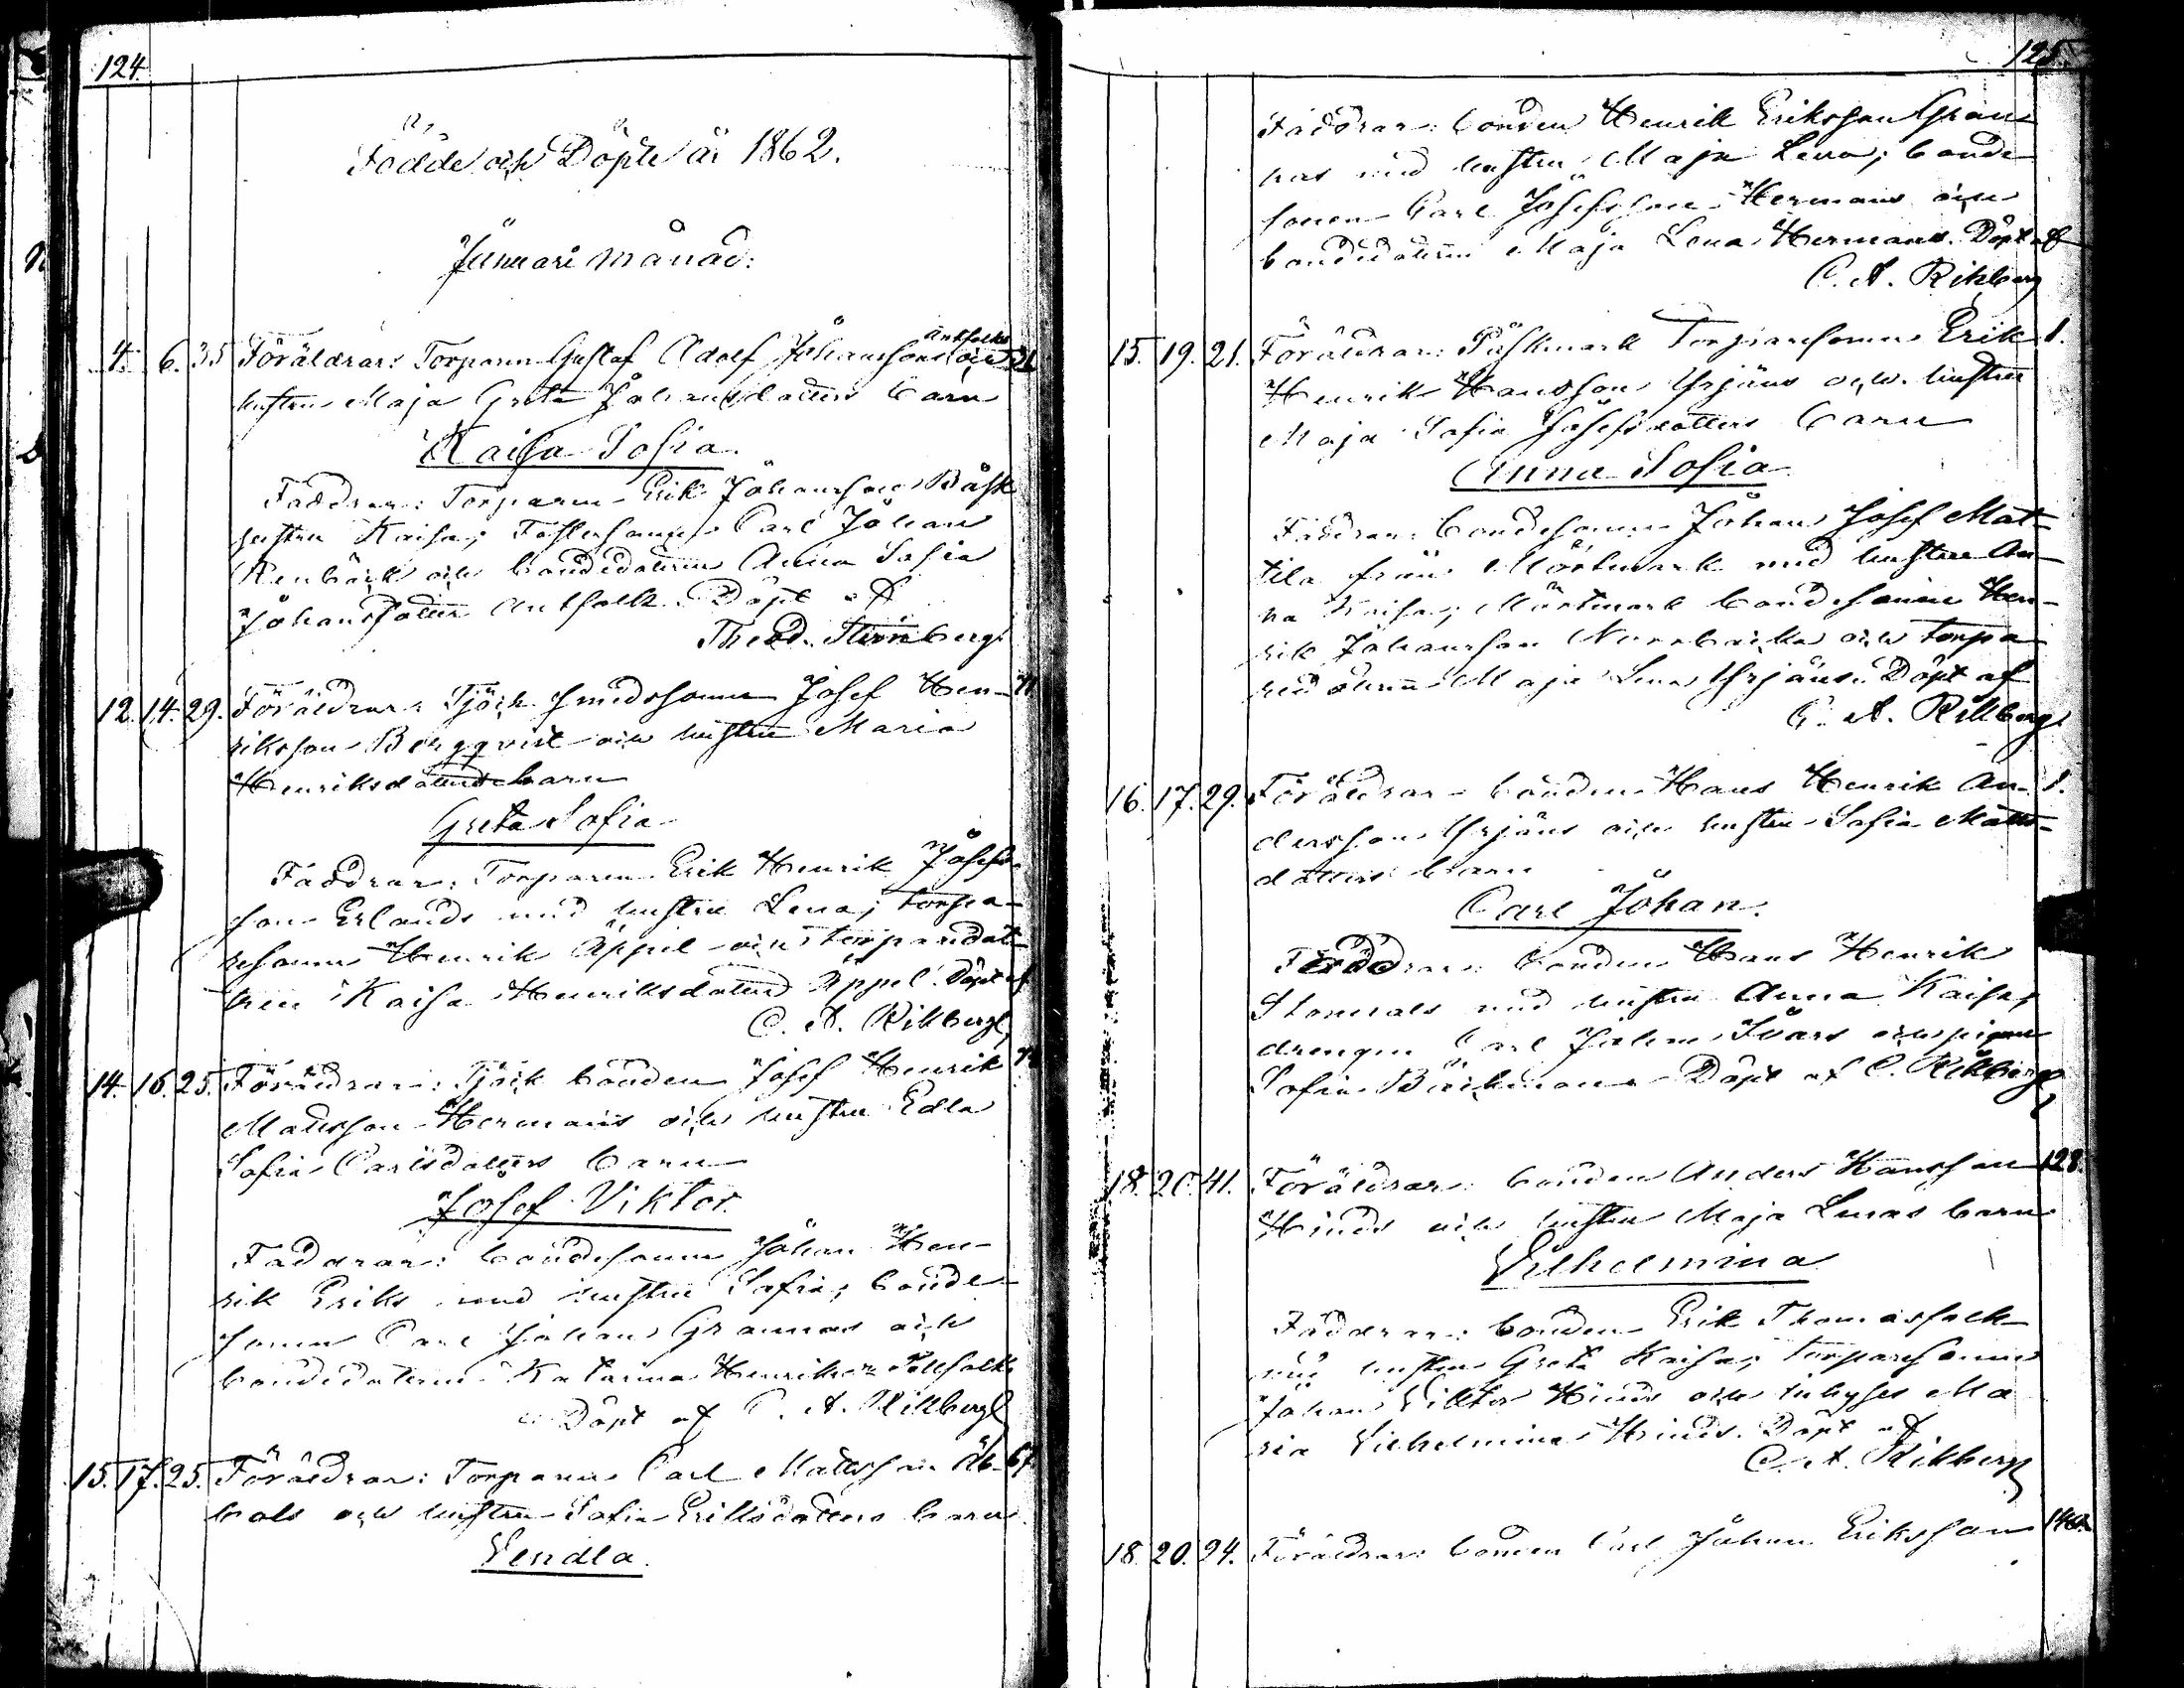 124.
Födde och Döpte år 1862.
Januari månad.
4. 6. 35 Föräldrar: Torparen Gustaf Adolf Johansson Antfolks och 21
hustrun Maja Greta Johansdotters barn
Kaisa Sofia.
Faddrar: Torparen Erik Johansson Båsk
hustru Kaisa; Fosterson Carl Johan
Renbäck och bondedottren Anna Sofia
Johansdotter Antfolk. Döpt af
Theod. Stirnberg.
12. 14. 29. Föräldrar: Tjöck smedssonen Josef Hen- 71
riksson Bergqvist och hustrun Maria
Henriksdotters barn
Greta Sofia
Faddrar: Torparen Erik Henrik Josefs-
son Erlands med hustru Lena; torpa-
resonen Henrik Äppel och torparedot-
tren Kaisa Henriksdotter Äppel. Döpt af
C. A. Rikberg,
14. 16. 25. Föräldrar: Tjöck bonden Josef Henrik 72
Mattsson Hermans och hustru Edla
Sofia Carlsdotters barn
Josef Viktor.
Faddrar: bondesonen Johan Hen-
rik Eriks med hustru Sofia; bonde-
sonen Carl Johan Grannas och
bondedottren Katarina Henriksdr Tollfolk
Döpt af C. A. Rikberg
15. 17. 25. Föräldrar: Torparen Carl Mattsson Åb- 67
bols och hustrun Sofia Eriksdotters barn
Vendla.
125.
Faddrar: bonden Henrik Eriksson Gran-
nas med hustru Maja Lena; bonde-
sonen Carl Josefsson Hermans och
bondedottren Maja Lena Hermans. Döpt af
C. A. Rikberg
15. 19. 21. Föräldrar: Påskmark Torparesonen Erik 1.
Henrik Hansson Yrjans och hustru
Maja Sofia Josefsdotters barn
Anna Sofia
Faddrar: bondesonen Johan Josef Mat-
tila från Mörtmark med hustru An-
na Kaisa; Mörtmark bondesonen Hen-
rik Johansson Norrbacka och torpa-
redottren Maja Lena Yrjans. Döpt af
C. A. Rikberg
16. 17. 29. Föräldrar: bonden Hans Henrik An- 1.
dersson Yrjans och hustru Sofia Matts-
dotters barn
Carl Johan.
Faddrar: bonden Hans Henrik
Storvals med hustru Anna Kaisa,
drengen Carl Johan Ivars och pigan
Sofia Bäckman. Döpt af C. Rikberg,
18. 20. 41. Föräldrar: bonden Anders Hansson 128.
Hinds och hustru Maja Lenas barn
Vilhelmina
Faddrar: bonden Erik Thomasfolk
med hustru Greta Kaisa; torparesonen
Johan Viktor Hinds och inhyses Ma
ria Vilhelmina Hinds. Döpt af
C. A. Rikberg
18. 20. 24. Föräldrar: bonden Carl Johan Eriksson